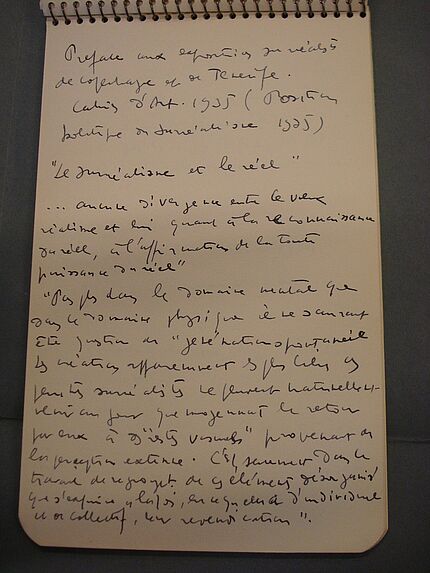 Preface aux expositions surréalistes
de Copenhague et de Ténérife.
Cahiers d'Art. 1935 (Position
politique du surréalisme 1935)
"Le surréalisme et le réel"
... aucune divergence entre le vieux
réalisme et lui quant à la reconnaissance
du réel, à l'affirmation de la toute
puissance du réel"
"Pas plus dans le domaine mental que
dans le domaine physique il ne saurait
être question de "génération spontanée
Les créations apparemment les plus libres des
peintres surréalistes ne peuvent naturellement
venir au jour que moyennant le retour
par eux à des "restes visuels" provenant de
la perception externe. C'est seulement dans le
travail de regroupement de ces éléments désorganisés
que s'exprime à la fois, en ce qu'elle a d'individuel
et de collectif, leur revendication".